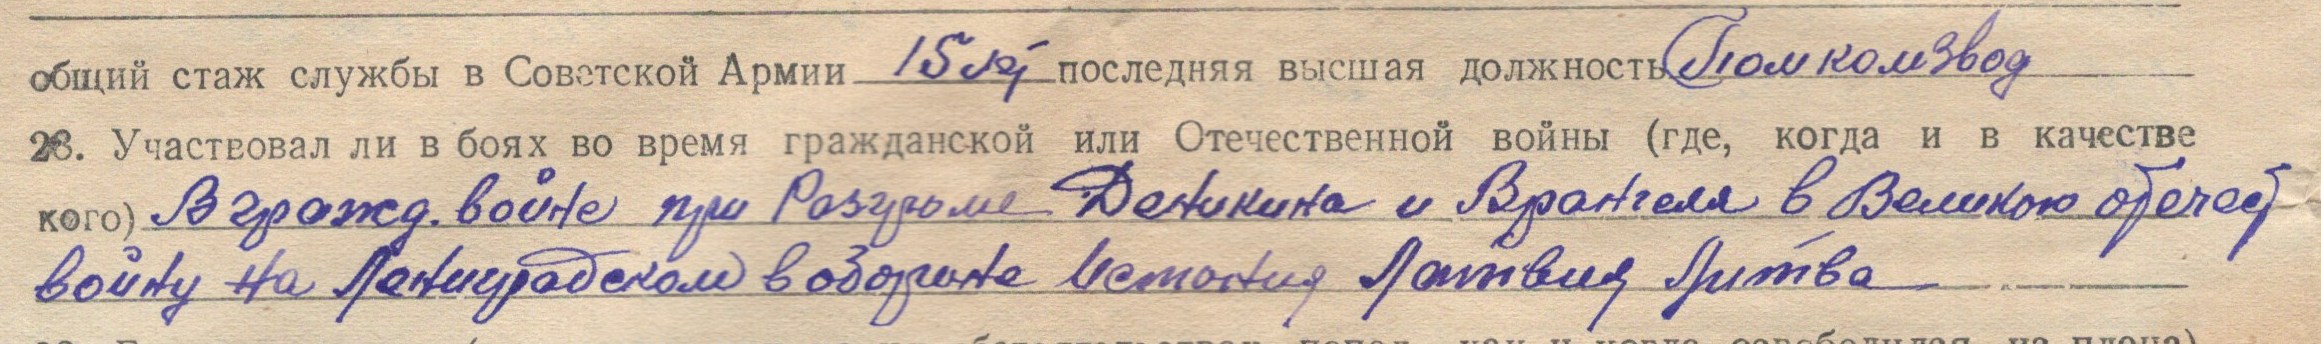 общий стаж службы в Советской Армии 15 лет последняя высшая должность Помкомзвод
28. Участвовал ли в боях во время гражданской или Отечественной войны (где, когда и в качестве
кого) В гражд. войне при Разгроме Деникина и Врангеля в Великою отечест
войну на Ленинградском в обороне Истония Латвия Литва
попал, как и когда освободился из плена)